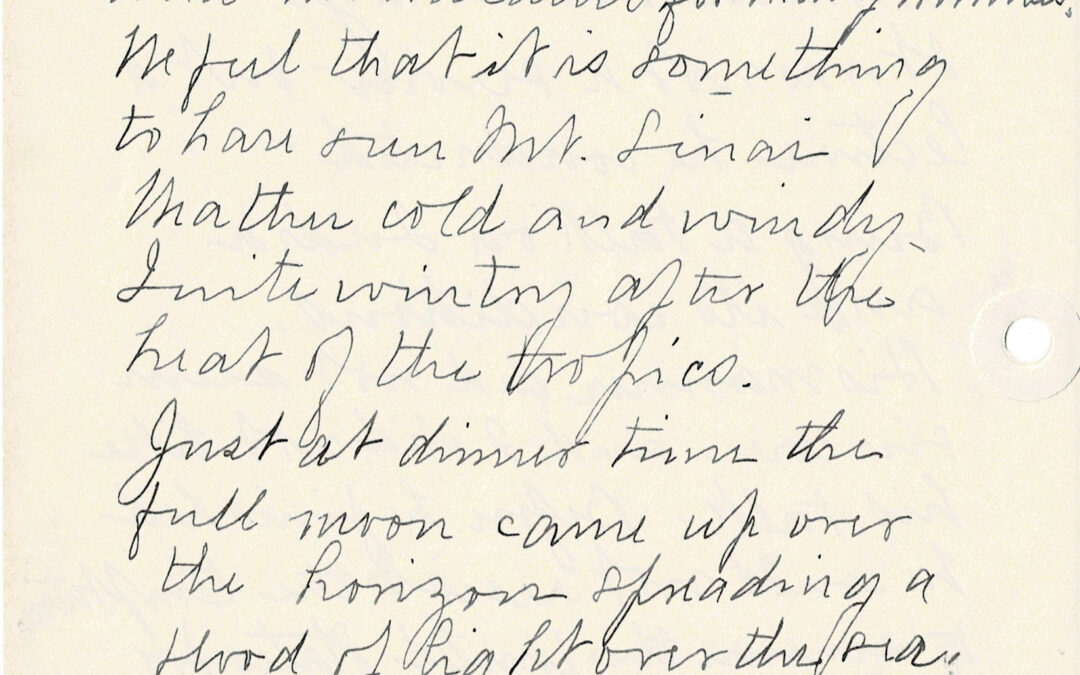 for many minutes.
We feel that it is something
to have seen Mt. Sinai
Weather cold and windy.
Quite wintry after the
heat of the tropics.
Just at dinner time the
full moon came up over
the horizon spreading a
flood of light over the sea.